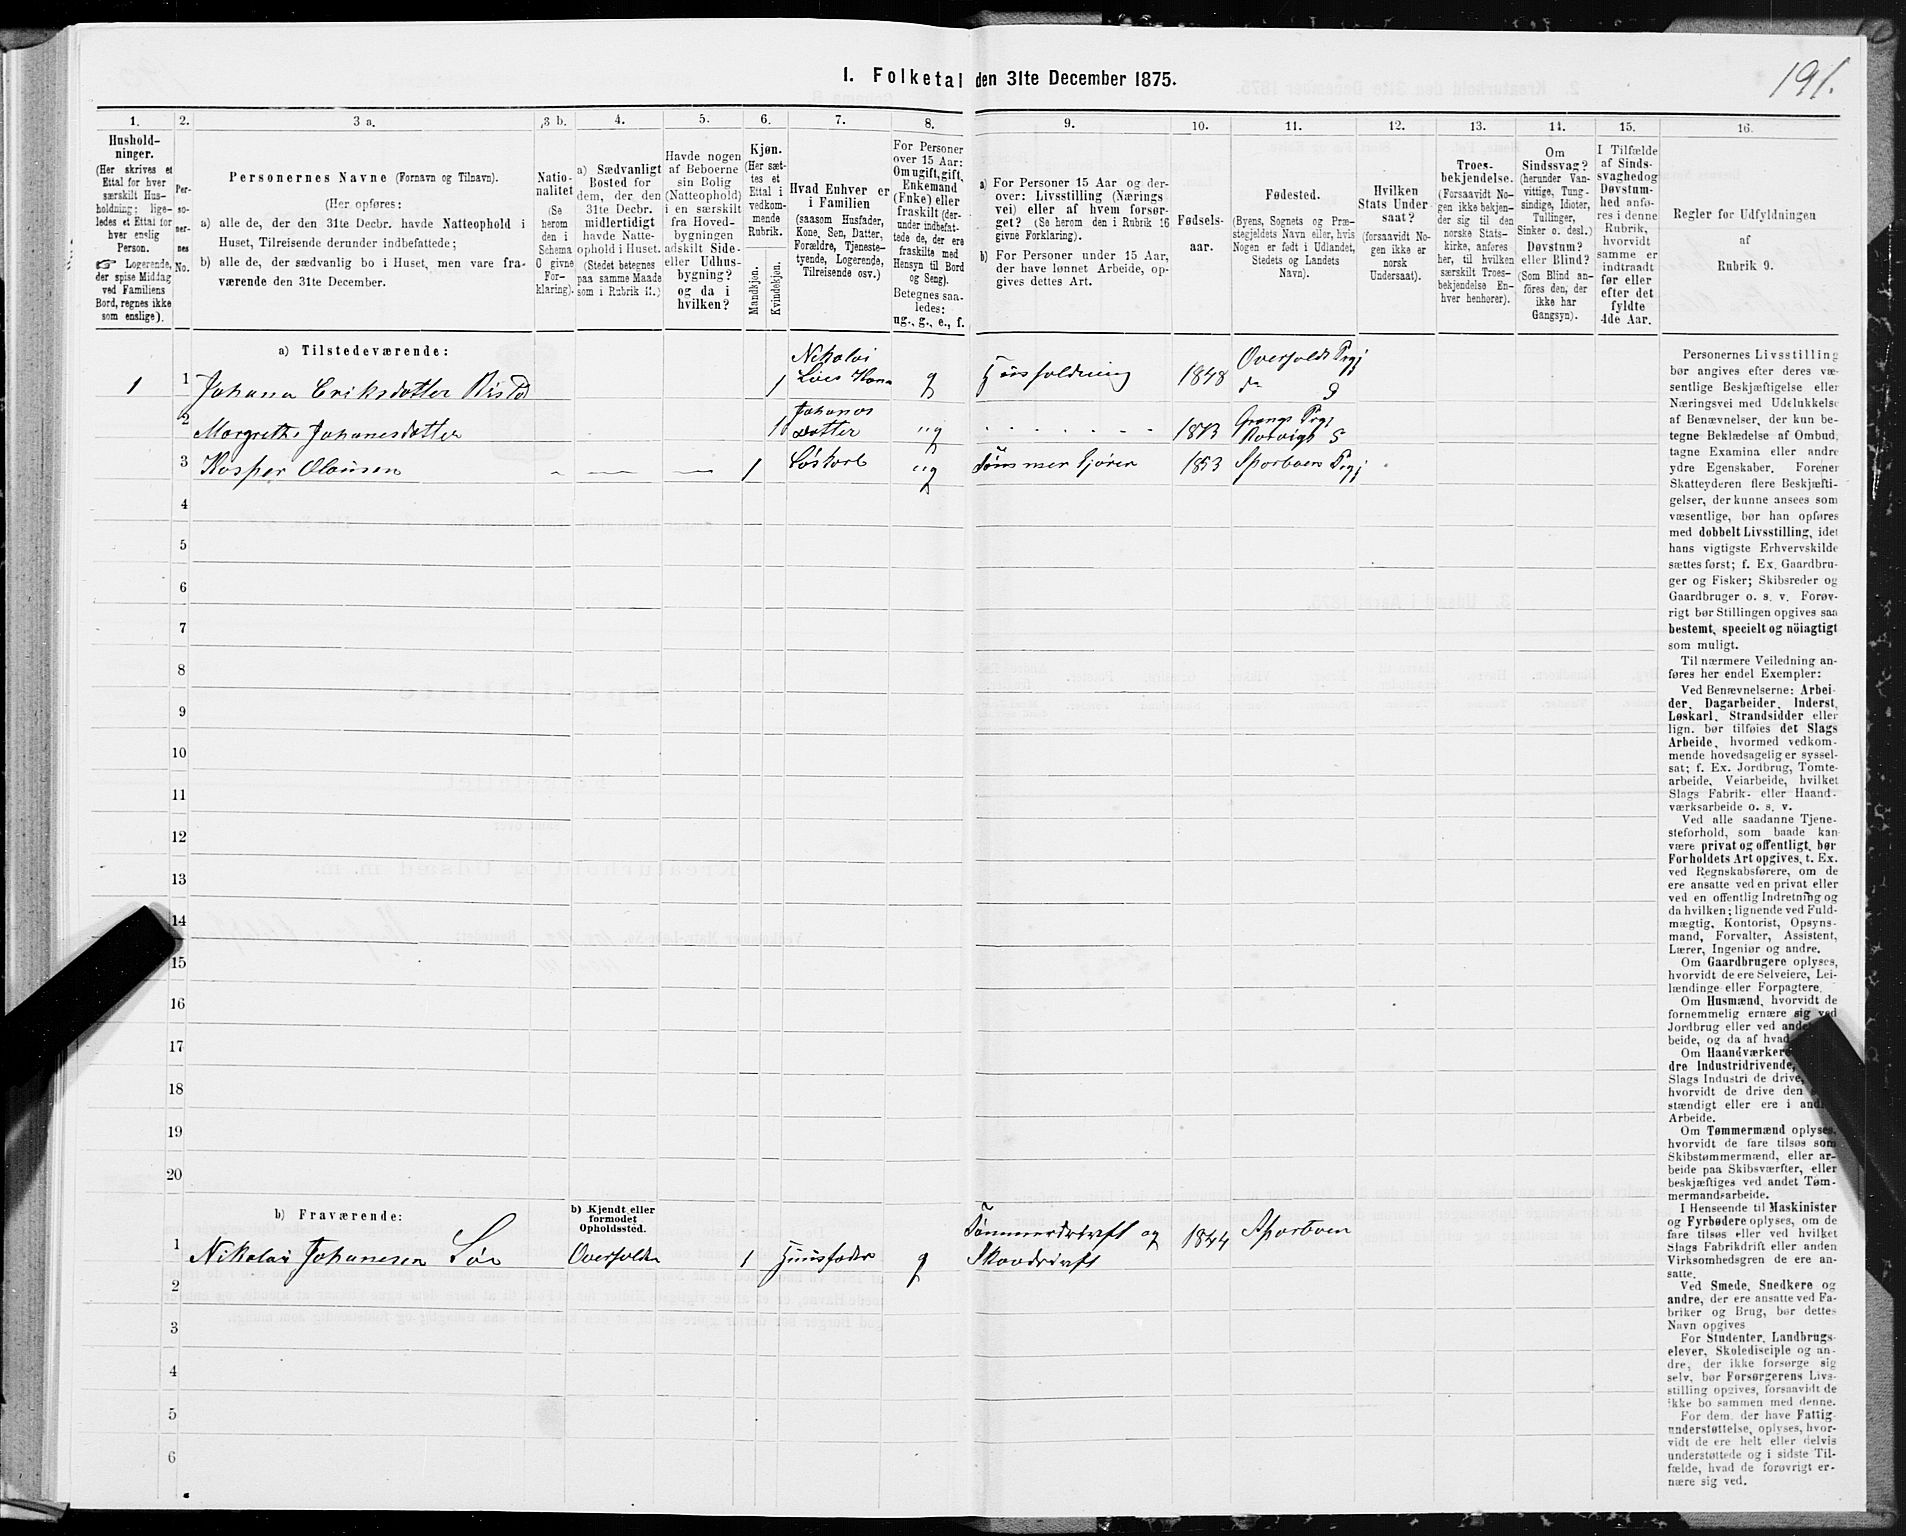 191.
I. Folketal den 31te December 1875.
1. 2. 3 a. 3 b. 4. 5. 6. 7. 8. 9. 10. 11. 12. 13. 14. 15. 16.
Hushold-
ninger.
(Her skrives et
Ettal for hver
særskilt Hus-
holdning; lige-
ledes et Ettal for
hver enslig
Person.
☞ Logerende,
der spise Middag
ved Familiens
Bord, regnes ikke
som enslige).
Per-
so-
ner-
nes
No.
Personernes Navne (Fornavn og Tilnavn).
(Her opføres:
a) alle de, der den 31te Decbr. havde Natteophold i
Huset, Tilreisende derunder indbefattede;
b) alle de, der sædvanlig bo i Huset, men vare fra-
værende den 31te December.
Natio-
nalitet
(Se
herom
den i
Schema
C givne
For-
klaring).
a) Sædvanligt
Bosted for
dem, der den
31te Decbr.
midlertidigt
havde Natte-
ophold i Huset.
(Stedet betegnes
paa samme Maade
som i Rubrik 11.)
Havde nogen
af Beboerne
sin Bolig
(Natteophold)
i en særskilt
fra Hoved-
bygningen
adskilt Side-
eller Udhus-
bygning?
og da i
hvilken?
Kjøn.
(Her sæt-
tes et
Ettal i
vedkom-
mende
Rubrik.
Mandkjøn.
Kvindekjøn.
Hvad Enhver er
i Familien
(saasom Husfader,
Kone, Søn, Datter,
Forældre, Tjeneste-
tyende, Logerende,
Tilreisende osv.)
For Personer
over 15 Aar:
Om ugift, gift,
Enkemand
(Enke) eller
fraskilt (der-
under indbefat-
tede de, der ere
fraskilte med
Hensyn til Bord
og Seng).
Betegnes saa-
ledes:
ug., g., e., f.
a) For Personer 15 Aar og der-
over: Livsstilling (Nærings
vei) eller af hvem forsør-
get? (Se herom den i Rubrik 16
givne Forklaring).
b) For Personer under 15 Aar,
der have lønnet Arbeide, op-
gives dettes Art.
Fødsels-
aar.
Fødested.
(Byens, Sognets og Præ-
stegjeldets Navn eller, hvis
Nogen er født i Udlandet,
Stedets og Landets
Navn).
Hvilken
Stats Under
saat?
(forsaavidt No-
gen ikke er
norsk
Undersaat).
Troes-
bekjendelse.
(Forsaavidt No-
gen ikke bekjen-
der sig til den
norske Stats-
kirke, anføres
her, til hvilken
særskilt Troes-
bekjendelse En-
hver henhører).
Om
Sindssvag?
(herunder Van-
vittige, Tung-
sindige, Idioter,
Tullinger,
Sinker o. desl.)
Døvstum?
eller Blind?
(Som Blind an-
føres den, der
ikke har
Gangsyn).
I Tilfælde
af Sinds-
svaghed og
Døvstum-
hed anfø-
res i denne
Rubrik,
hvorvidt
samme er
indtraadt
før eller
efter det
fyldte
4de Aar.
Regler for Udfyldningen
af
Rubrik 9.
a) Tilstedeværende:
1 1 Johana Eriksdatter 1 Nikolai g 1848
2 Margrethe Johanesdatter 1 Datter ug 1873
3 Kasper Olausen 1 Løskarl ug 1853
4
5
6
7
8
9
10
11
12
13
14
15
16
17
18
19
20
b) Fraværende:
b) Kjendt eller
formodet
Opholdssted.
1 Nikolai Johanesen 1 Huusfader g Tømmerdrivft og 1844
2
3
4
5
6
Personernes Livsstilling
bør angives efter deres væ-
sentlige Beskjæftigelse eller
Næringsvei med Udelukkelse
af Benævnelser, der kun be-
tegne Beklædelse af Ombud,
tagne Examina eller andre
ydre Egenskaber. Forener
Skatteyderen flere Beskjæfti-
gelser, der kunne ansees som
væsentlige, bør han opføres
med dobbelt Livsstilling, idet
hans vigtigste Erhvervskilde
sættes først; f. Ex. Gaardbru-
ger og Fisker; Skibsreder og
Gaardbruger o. s. v. Forøv-
rigt bør Stillingen opgives saa
bestemt, specielt og nöiagtigt
som muligt.
Til nærmere Veiledning an-
føres her endel Exempler:
Ved Benævnelserne: Arbei-
der, Dagarbeider, Inderst,
Løskarl, Strandsidder eller
lign. bør tilføies det Slags
Arbeide, hvormed vedkom-
mende hovedsagelig er syssel-
sat; f. Ex. Jordbrug, Tomte-
arbeide, Veiarbeide, hvilket
Slags Fabrik- eller Haand-
værksarbeide o. s. v.
Ved alle saadanne Tjene-
steforhold, som baade kan
være privat og offentligt, bør
Forholdets Art opgives, t. Ex.
ved Regnskabsførere, om de
ere ansatte ved en privat eller
ved en offentlig Indretning og
da hvilken; lignende ved Fuld-
mægtig, Kontorist, Opsyns-
mand, Forvalter, Assistent,
Lærer, Ingeniør og andre.
Om Gaardbrugere oplyses,
hvorvidt de ere Selveiere, Lei-
lændinge eller Forpagtere.
Om Husmænd, hvorvidt de
fornemmelig ernære sig ved
Jordbrug eller ved andet
beide, og da af hvad
Om Haandværkere
dre Industridrivende,
Slags Industri de drive,
hvorvidt de drive den
stændigt eller ere i
Arbeide.
Om Tømmermænd oplyses,
hvorvidt de fare tilsøs som
Skibstømmermænd, eller ar-
beide paa Skibsværfter, eller
beskjæftiges ved andet Tøm-
mermandsarbeide.
I Henseende til Maskinister
og Fyrbødere oplyses, om de
fare tilsøs eller ved hvilket
Slags Fabrikdrift eller anden
Virksomhedsgren de ere an-
satte.
Ved Smede, Snedkere og
andre, der ere ansatte ved Fa-
briker og Brug, bør dettes
Navn opgives
For Studenter, Landbrugs-
elever, Skoledisciple og an-
dre, der ikke forsørge sig
selv, bør Forsørgerens Livs-
stilling opgives, forsaavidt de
ikke bo sammen med denne.
For dem, der have Fattig-
understøttelse, oplyses, hvor-
vidt de ere helt eller delvis
understøttede og i sidste Til-
fælde, hvad de forøvrigt er-
nære sig ved.